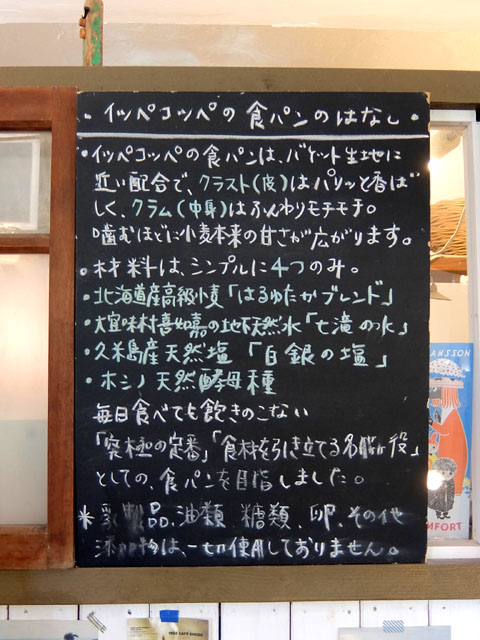 ・イッペコッペの食パンのはなし・
・イッペコッペの食パンは、バゲット生地に
近い配合で、クラスト(皮)はパリッと香ば
しく、クラム(中身)はふんわりモチモチ。
噛むほどに小麦本来の甘さが広がります。
・材料は、シンプルに4つのみ。
・北海道産高級小麦「はるゆたかブレンド」
・大宜味村喜如嘉の地下天然水「七滝の水」
・久米島産天然塩「白銀の塩」
・ホシノ天然酵母種
毎日食べても飽きのこない
「究極の定番」「食材を引き立てる名脇役」
としての、食パンを目指しました。
*乳製品、油類、糖類、卵、その他
添加物は、一切使用しておりません。
ANSSON
MFORT